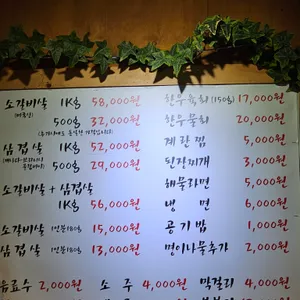 소갈비살 1Kg 58,000원
500g 32,000원
삼겹살 1Kg 52,000원
500g 29,000원
소갈비살 + 삼겹살
1Kg 56,000원
소갈비살 1인분180g 15,000원
삼겹살 1인분180g 13,000원
한우육회(150g) 17,000원
한우물회 20,000원
계란찜 5,000원
된장찌개 3,000원
해물라면 5,000원
냉면 6,000원
공기밥 1,000원
명이나물추가 2,000원
음료수 2,000원 소주 4,000원 막걸리 4,000원